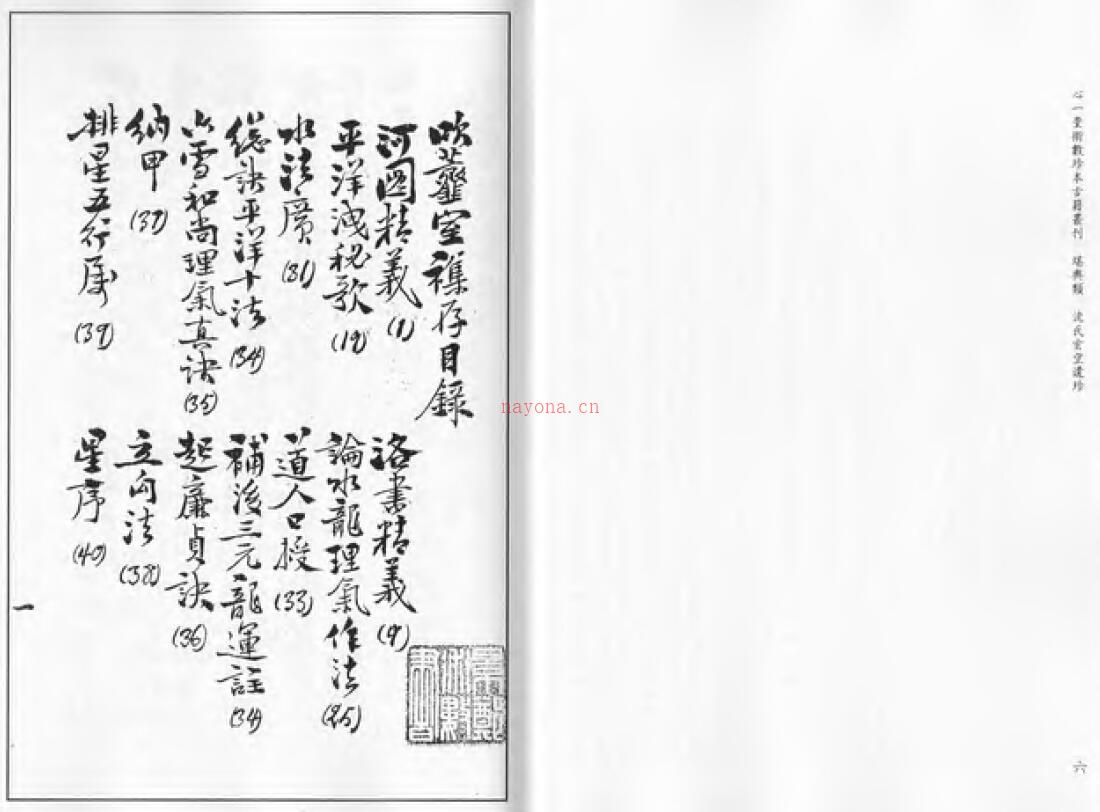 心一堂術數珍本古籍叢刊 堪輿類 沈氏玄空遺珍
六
吹虀室襍存目錄
河圖精義(1) 洛書精義(9)
平洋洩秘歌(19) 論水龍理氣作法(25)
水法廣(31) 道人口授(33)
總訣平洋十法(34) 補後三元龍運註(34)
雪和尚理氣真訣(35) 起廉貞訣(36)
納甲(37) 立向法(38)
排星五行屬(39) 星序(40)
一
nayona.cn